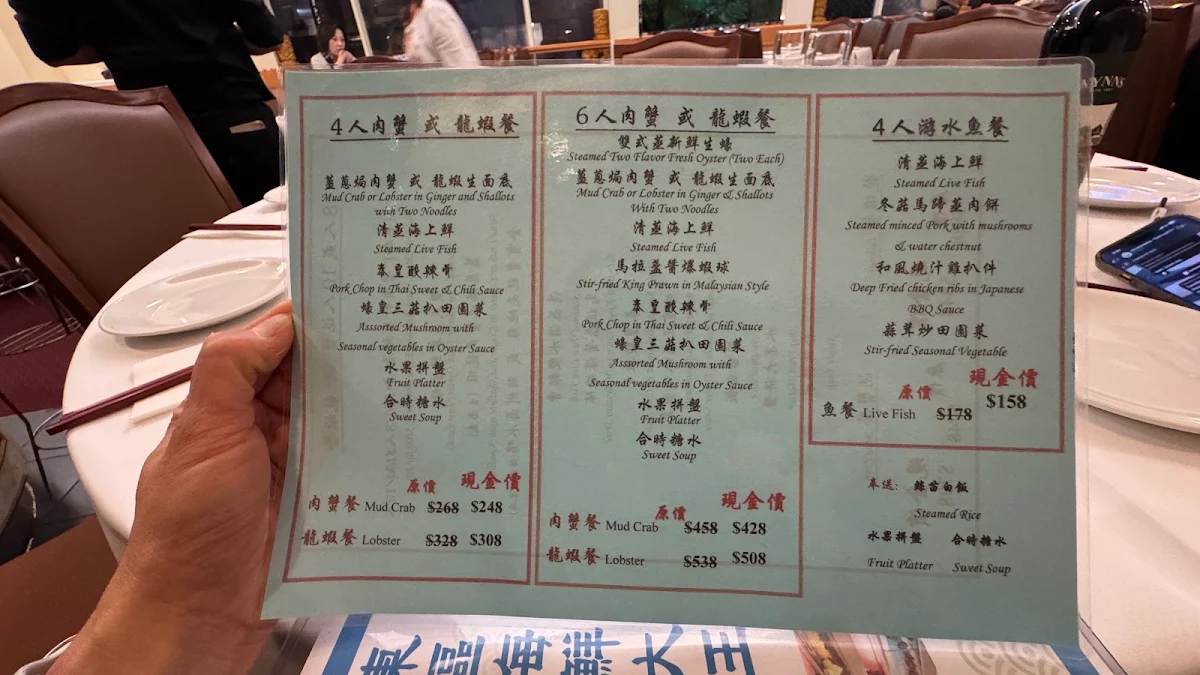 4人肉蟹 或 龍蝦餐
薑蔥焗肉蟹 或 龍蝦生面底
Mud Crab or Lobster in Ginger and Shallots
with Two Noodles
清蒸海上鮮
Steamed Live Fish
泰皇酸辣骨
Pork Chop in Thai Sweet & Chili Sauce
蠔皇三菇扒田園菜
Asssorted Mushroom with
Seasonal vegetables in Oyster Sauce
水果拼盤
Fruit Platter
合時糖水
Sweet Soup
原價 現金價
肉蟹餐 Mud Crab $268 $248
龍蝦餐 Lobster $328 $308
6人肉蟹 或 龍蝦餐
雙式蒸新鮮生蠔
Steamed Two Flavor Fresh Oyster (Two Each)
薑蔥焗肉蟹 或 龍蝦生面底
Mud Crab or Lobster in Ginger & Shallots
With Two Noodles
清蒸海上鮮
Steamed Live Fish
馬拉盞醬爆蝦球
Stir-fried King Prawn in Malaysian Style
泰皇酸辣骨
Pork Chop in Thai Sweet & Chili Sauce
蠔皇三菇扒田園菜
Asssorted Mushroom with
Seasonal vegetables in Oyster Sauce
水果拼盤
Fruit Platter
合時糖水
Sweet Soup
原價 現金價
肉蟹餐 Mud Crab $458 $428
龍蝦餐 Lobster $538 $508
4人游水魚餐
清蒸海上鮮
Steamed Live Fish
冬菇馬蹄蒸肉餅
Steamed minced Pork with mushrooms
& water chestnut
和風燒汁雞扒件
Deep Fried chicken ribs in Japanese
BBQ Sauce
蒜茸炒田園菜
Stir-fried Seasonal Vegetable
原價 現金價
魚餐 Live Fish $178 $158
奉送: 絲苗白飯
Steamed Rice
水果拼盤 合時糖水
Fruit Platter Sweet Soup
東區海鮮大王